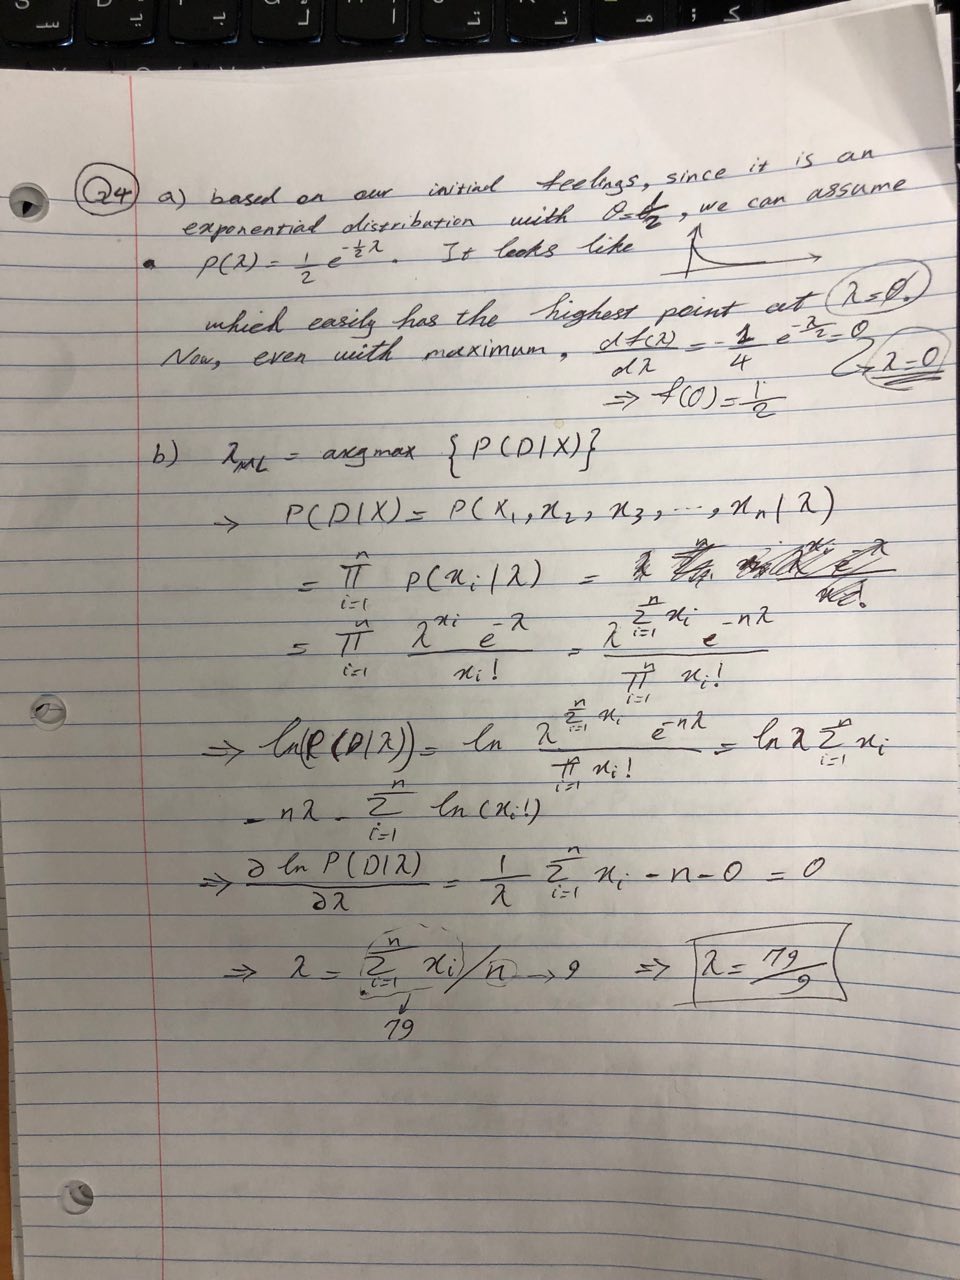 Q4 a) based on our initial feelings, since it is an
exponential distribution with θ=1/2, we can assume
• P(λ) = 1/2 e^{-1/2 λ}. It looks like
which easily has the highest point at λ=0.
Now, even with maximum, df(λ)/dλ = -1/4 e^{-λ/2} = 0
λ=0
⇒ f(0) = 1/2
b) λ_ML = argmax { P(D|X) }
→ P(D|X) = P(x₁, x₂, x₃, ..., xₙ | λ)
= ∏_{i=1}^{n} P(xᵢ|λ) =
= ∏_{i=1}^{n} λ^{xᵢ} e^{-λ} / xᵢ! = λ^{∑_{i=1}^{n} xᵢ} e^{-nλ} / ∏_{i=1}^{n} xᵢ!
⇒ ln(P(D|λ)) = ln λ^{∑_{i=1}^{n} xᵢ} e^{-nλ} / ∏_{i=1}^{n} xᵢ! = ln λ ∑_{i=1}^{n} xᵢ
- nλ - ∑_{i=1}^{n} ln(xᵢ!)
⇒ ∂ ln P(D|λ) / ∂λ = 1/λ ∑_{i=1}^{n} xᵢ - n - 0 = 0
⇒ λ = ∑_{i=1}^{n} xᵢ / n → 9 ⇒ λ = 79/9
79